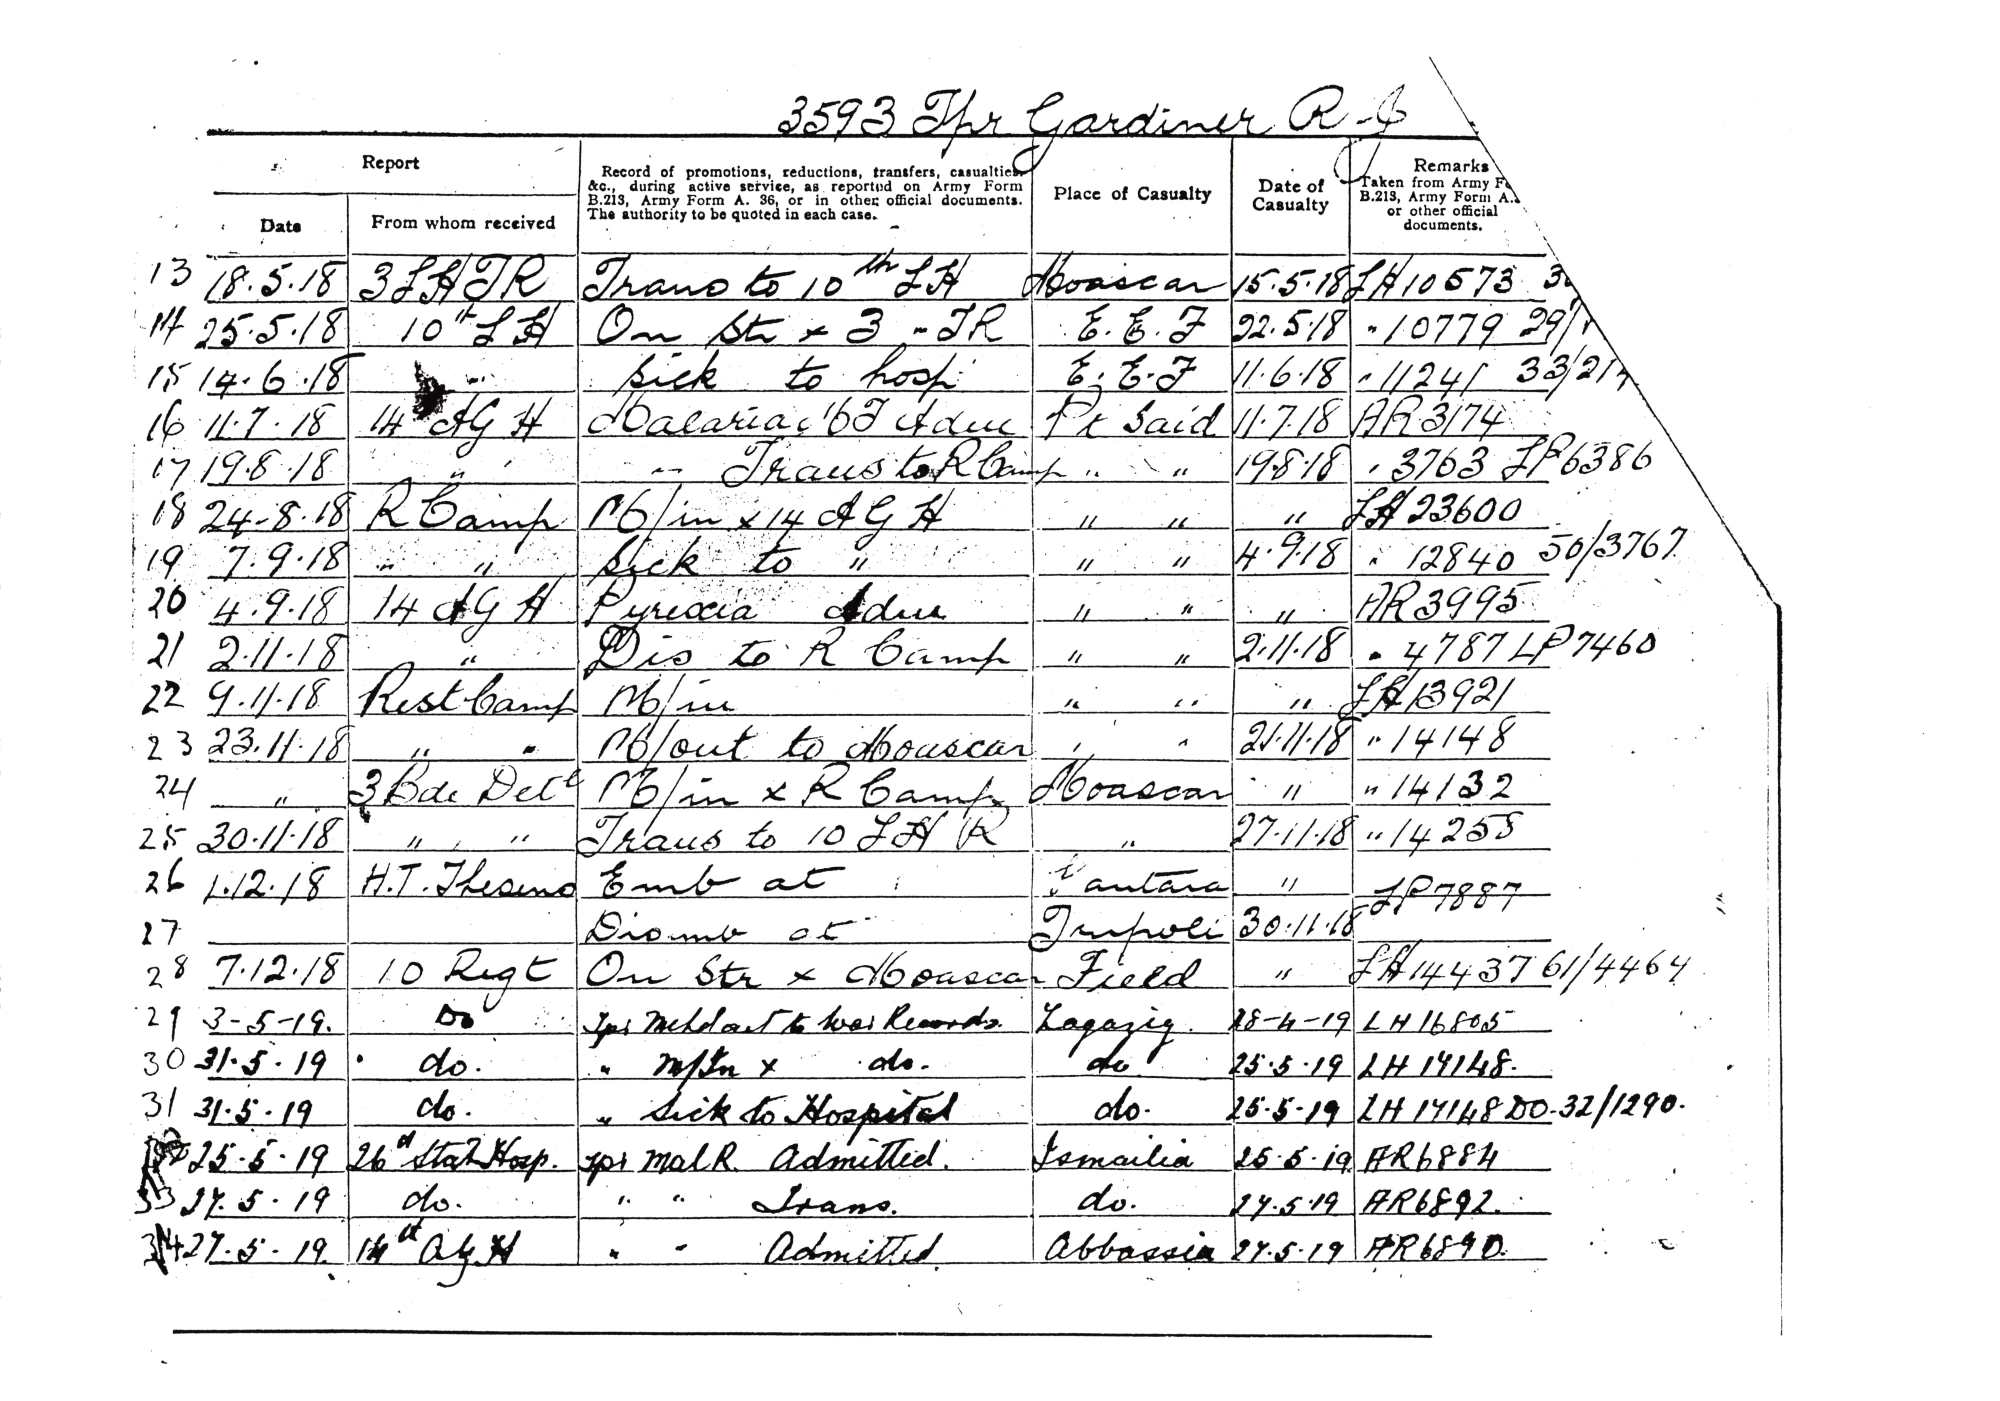 3593 Tpr Gardiner R-J
Report
Record of promotions, reductions, transfers, casualties, &c., during active service, as reported on Army Form B.213, Army Form A. 36, or in other official documents. The authority to be quoted in each case.
Place of Casualty
Date of Casualty
Remarks Taken from Army Fo B.213, Army Form A. or other official documents.
Date
From whom received
13 18.5.18 3 LH TR Trans to 10th LH Moascar 15.5.18 LH 10573
14 25.5.18 10th LH On Str x 3 " TR E.E.F 22.5.18 " 10779 29/
15 14.6.18 " Sick to hosp E.E.F 11.6.18 " 11241 33/21
16 11.7.18 14 AGH Malaria BT Adm Pt Said 11.7.18 AR 3174
17 19.8.18 " " Trans to R Camp " " 19.8.18 " 3763 LP 6386
18 24-8.18 R Camp M/in x 14 AGH " " " LH 23600
19 7.9.18 " " Sick to " " " 4.9.18 " 12840 50/3767
20 4.9.18 14 AGH Pyrexia Adm " " " AR 3995
21 2.11.18 " Dis to R Camp " " 2.11.18 " 4787 LP 7460
22 9.11.18 Rest Camp M/in " " " LH 13921
23 23.11.18 " " M/out to Moascar " " 21.11.18 " 14148
24 " 3 Bde Detl M/in x R Camp Moascar " " 14132
25 30.11.18 " " Trans to 10 LH R " 27.11.18 " 14255
26 1.12.18 H.T. Theseus Emb at Kantara " LP 7887
27 Disemb at Tripoli 30.11.18
28 7.12.18 10 Regt On Str x Moascar Field " LH 14437 61/4464
29 3-5-19. Do Tpr M out to War Records. Zagazig. 28-4-19 LH 16805
30 31.5.19 do. " M/In x do. do 25.5.19 LH 17148.
31 31.5.19 do. " Sick to Hospital do. 25.5.19 LH 17148 DO. 32/1290.
32 25.5.19 26th Stat Hosp. Tpr Mal R. Admitted. Ismailia 25.5.19 AR 6884
33 27.5.19 do. " " Trans. do. 27.5.19 AR 6892.
34 27.5.19. 14th A.G.H " " Admitted. Abbassia 27.5.19 AR 6890.